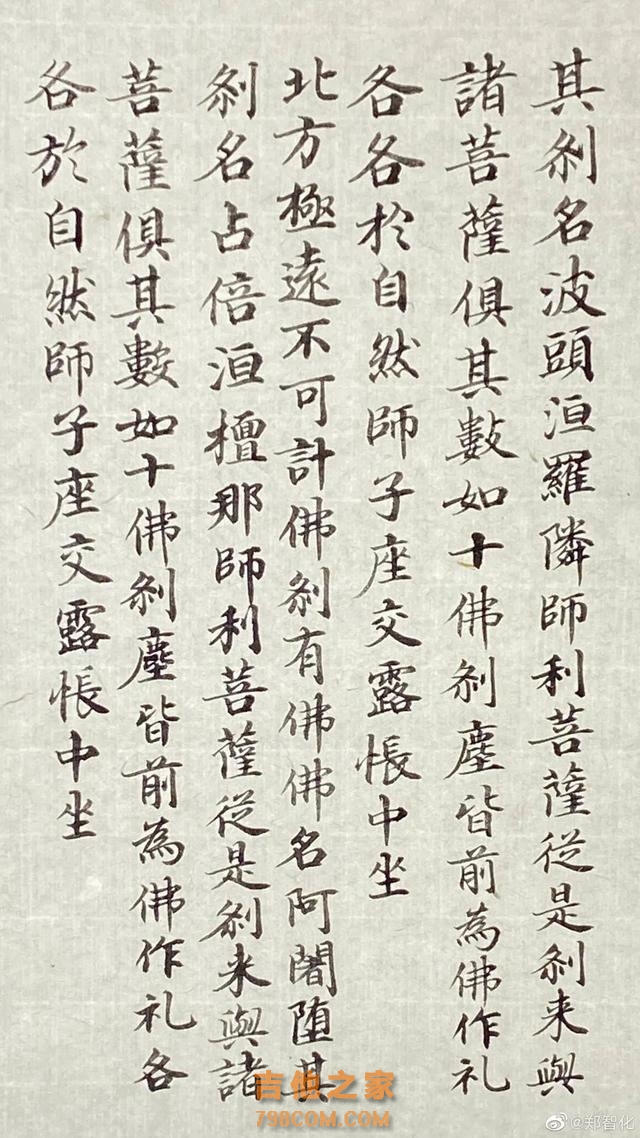 其剎名波頭洹羅隣師利菩薩從是剎来與
諸菩薩俱其數如十佛剎塵皆前為佛作礼
各各於自然師子座交露帳中坐
北方極遠不可計佛剎有佛佛名阿闍堕其
剎名占倍洹檀那師利菩薩從是剎来與諸
菩薩俱其數如十佛剎塵皆前為佛作礼各
各於自然師子座交露帳中坐
吉他之家
798COM.COM
@郑智化